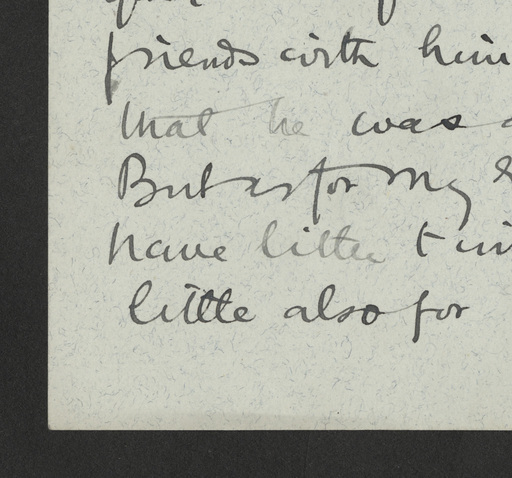 friends with him
that he was
But as for my
have little
little also for